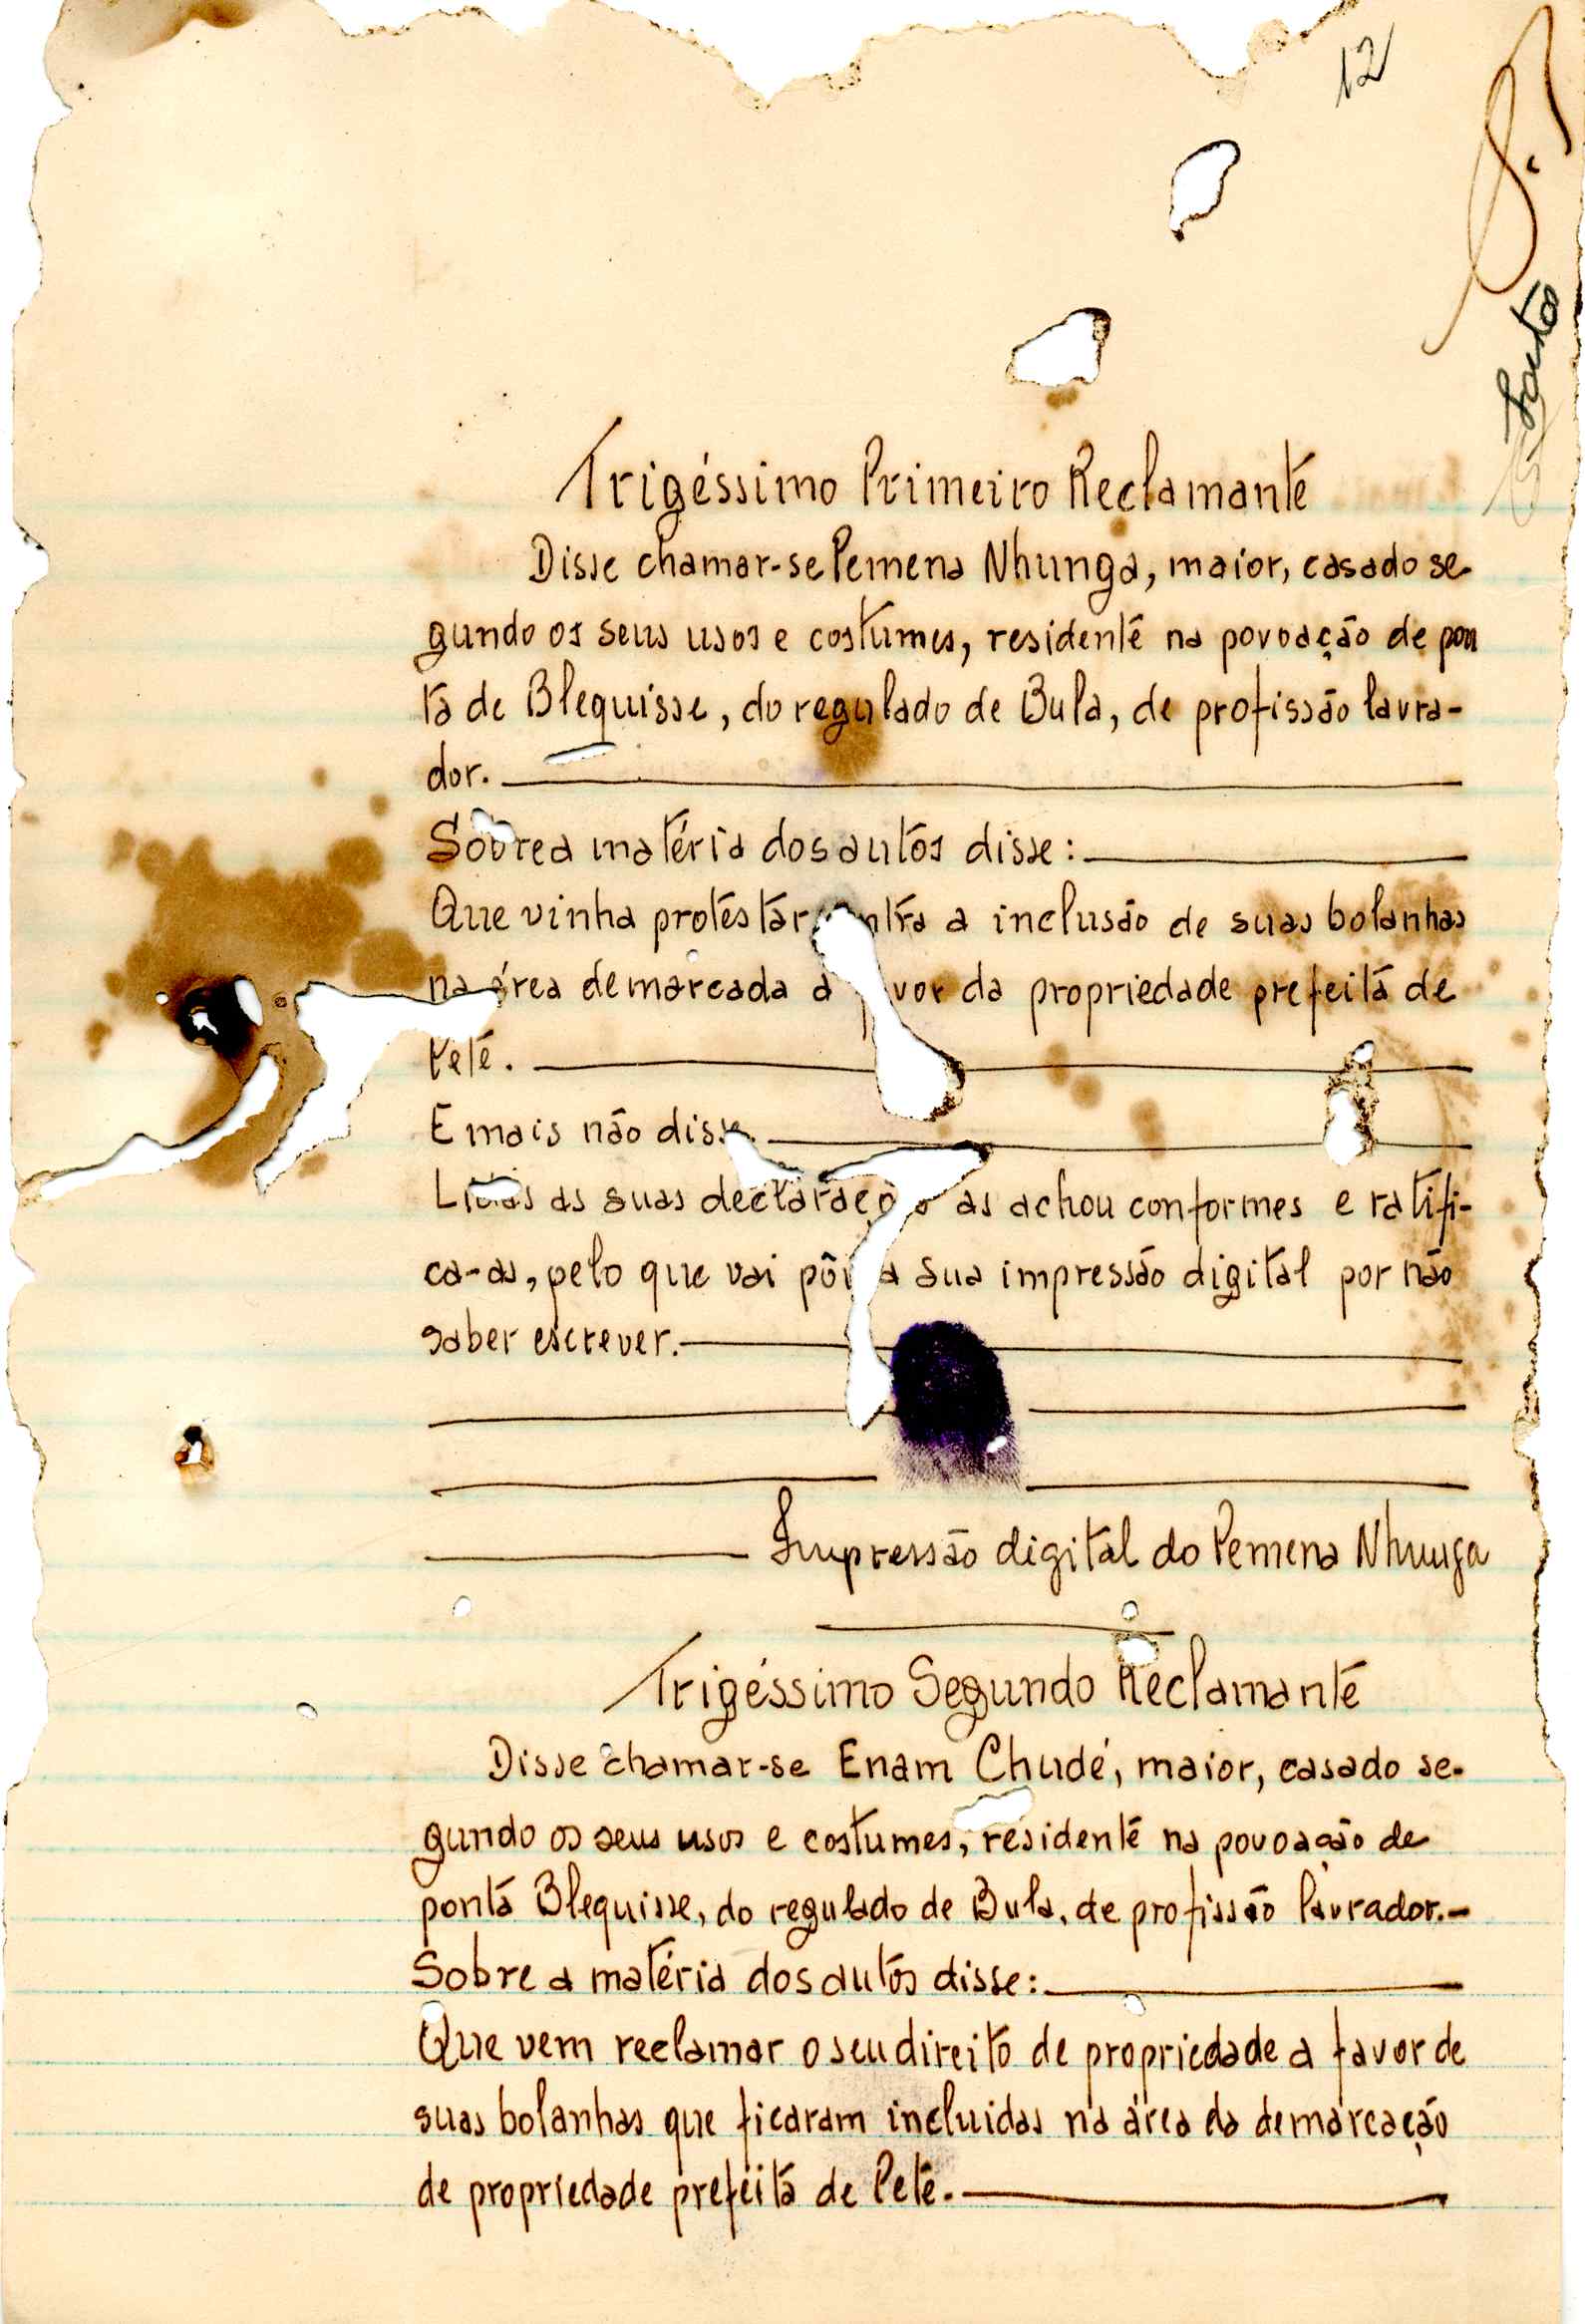 12
Trigéssimo Primeiro Reclamante
Disse chamar-se Pemena Nhunga, maior, casado se-
gundo os seus usos e costumes, residente na povoação de pon
ta de Blequisse, do regulado de Bula, de profissão lavra-
dor.
Sobre a matéria dos autos disse:
Que vinha protestar contra a inclusão de suas bolanhas
na área demarcada a favor da propriedade prefeita de
Pete.
E mais não disse.
Lidas as suas as achou conformes e ratifi-
ca-as, pelo que vai pôr a sua impressão digital por não
saber escrever.
Impressão digital do Pemena Nhunga
Trigéssimo Segundo Reclamante
Disse chamar-se Enam Chudé, maior, casado se-
gundo os seus usos e costumes, residente na povoação de
ponta Blequisse, do regulado de Bula, de profissão lavrador.-
Sobre a matéria dos autos disse:
Que vem reclamar o seu direito de propriedade a favor de
suas bolanhas que ficaram incluidas na área da demarcação
de propriedade prefeita de Pete.